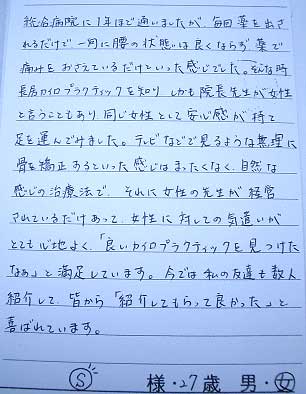 総合病院に1年ほど通いましたが、毎回薬を出さ
れるだけで一向に腰の状態は良くならず薬で
痛みをおさえているだけといった感じでした。そんな時
長房カイロプラクティックを知り、しかも院長先生が女性
と言うこともあり同じ女性として安心感が持て
足を運んでみました。テレビなどで見るような無理に
骨を矯正するといった感じはまったくなく、自然な
感じの治療法で、それに女性の先生が経営
されているだけあって、女性に対しての気遣いが
とても心地よく、「良いカイロプラクティックを見つけた
なぁ」と満足しています。今では私の友達も数人
紹介して、皆から「紹介してもらって良かった」と
喜ばれています。
S 様・27歳 男・女